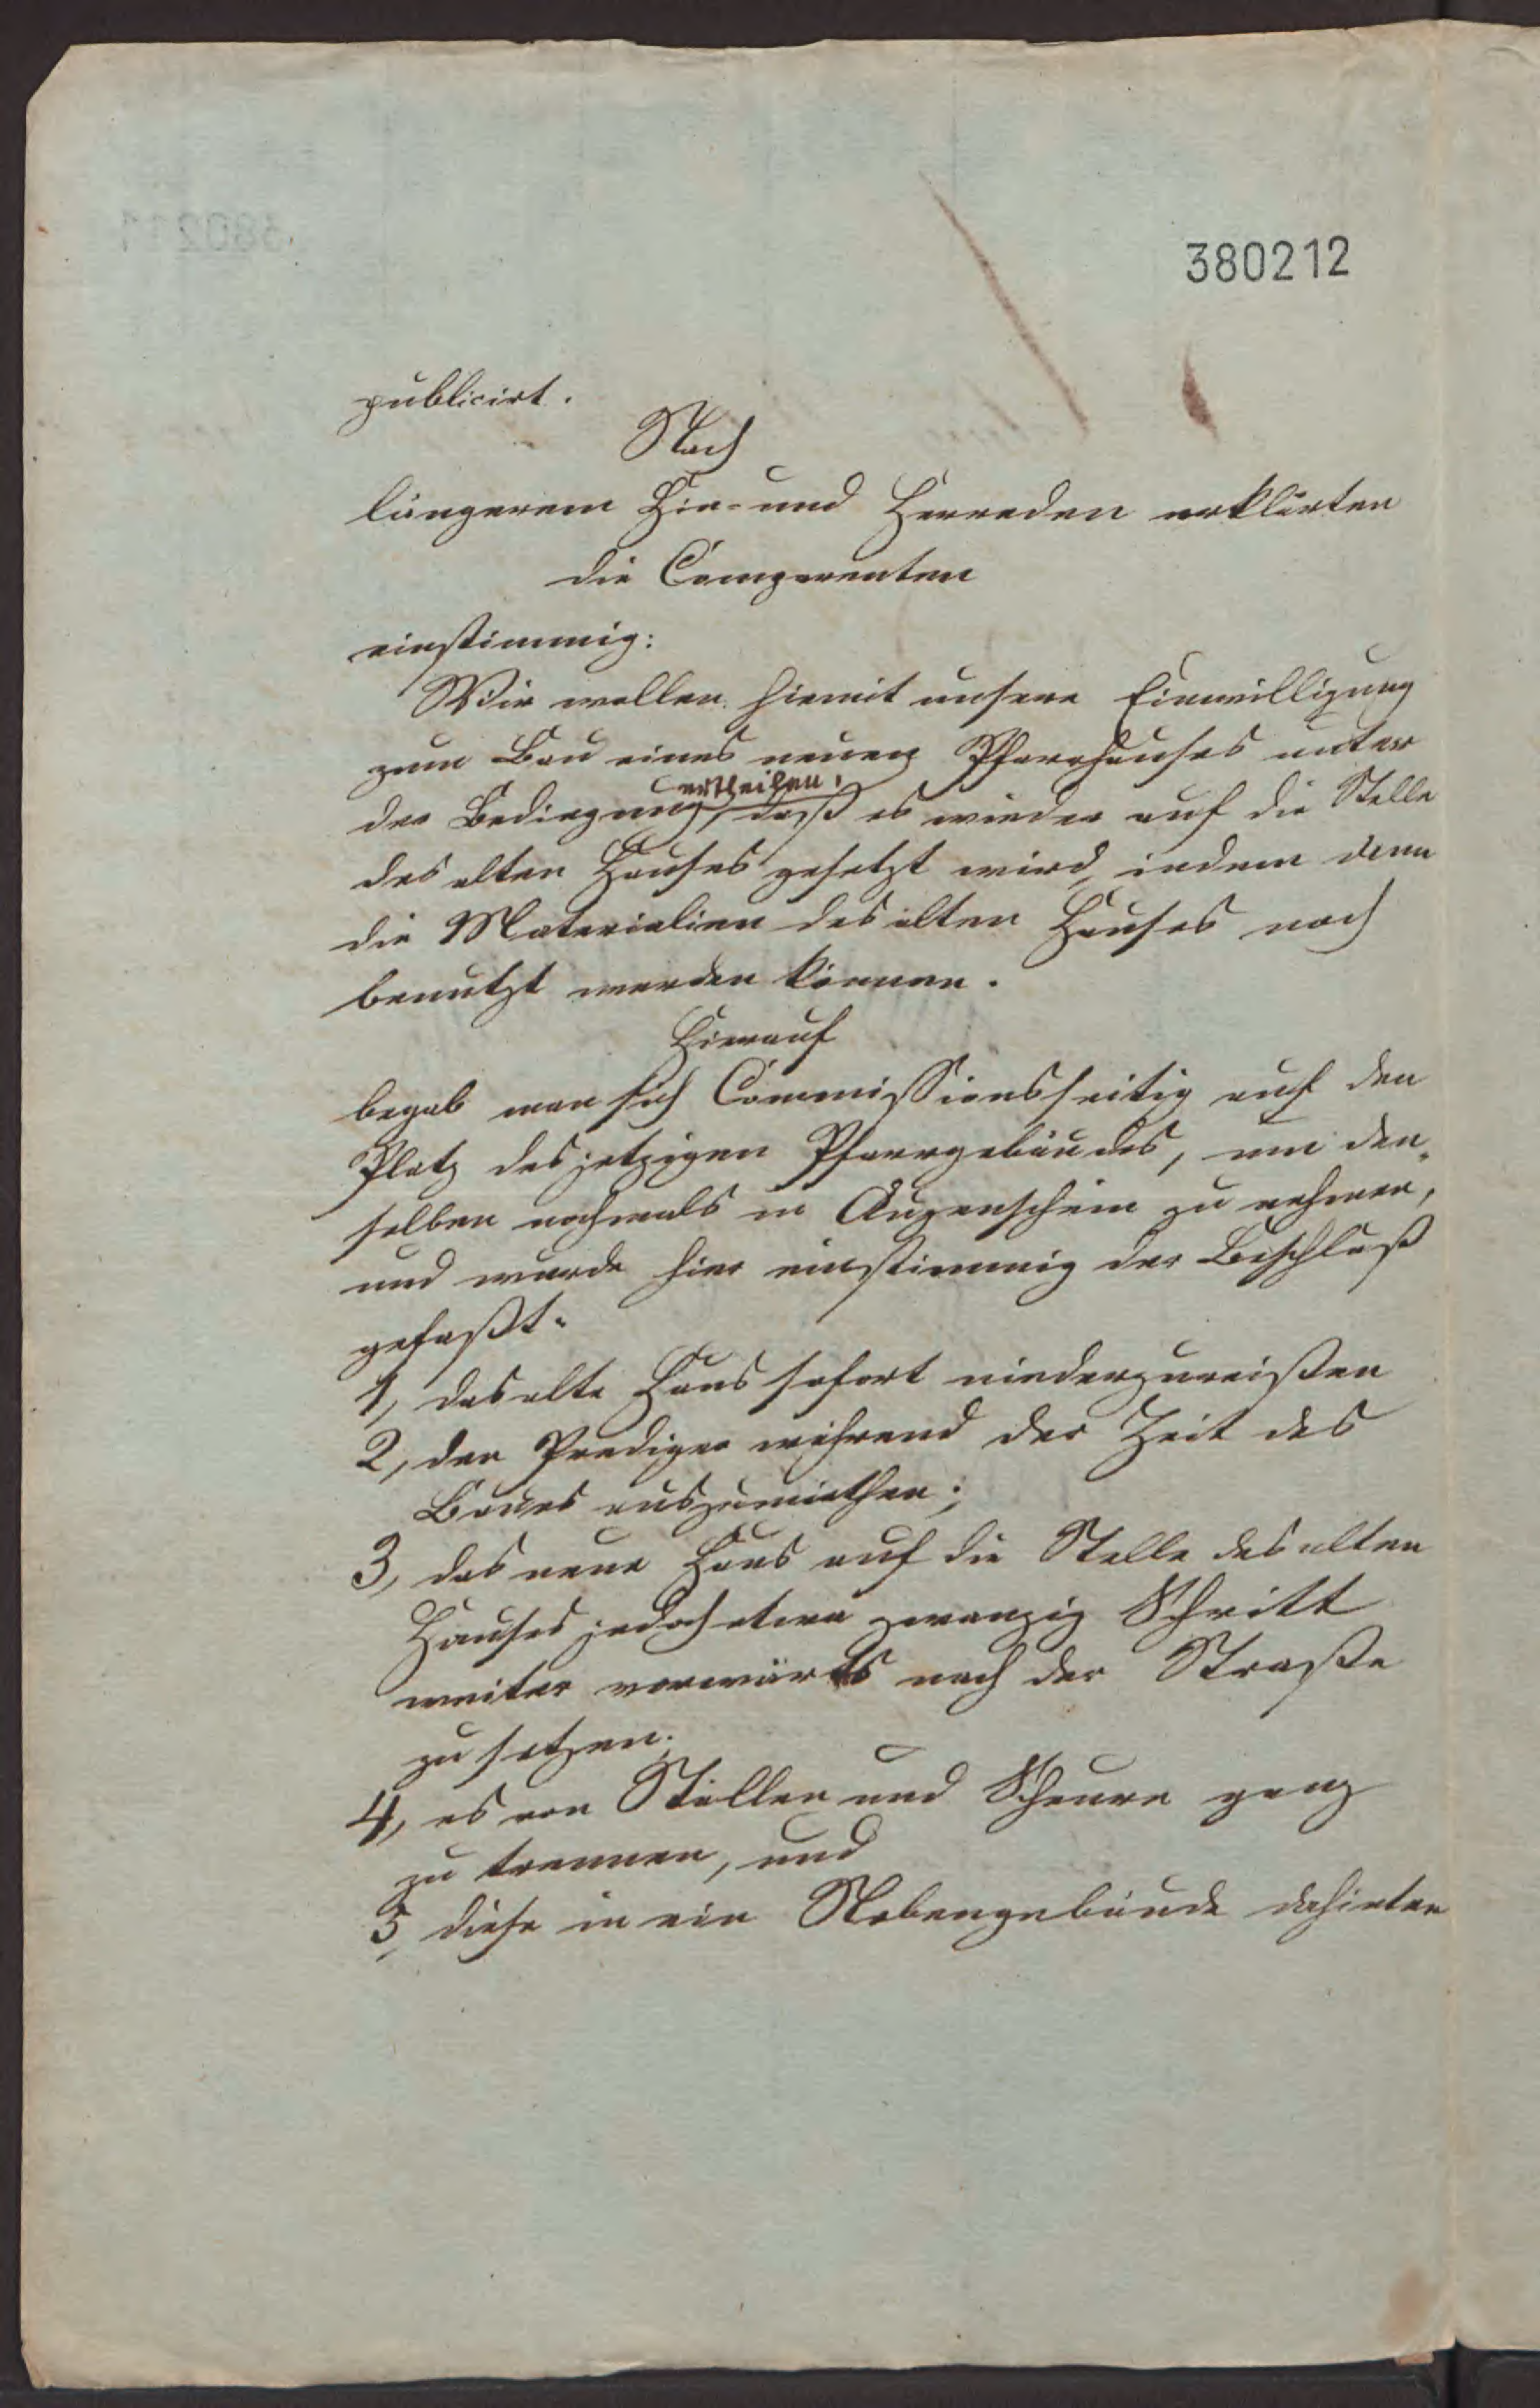 380212
publicirt.
Nach
längerem Hin- und Herreden erklärten
die Comparenten
einstimmig:
Wir wollen hiemit unsere Einwilligung
zum Bau eines neuen Pfarrhauses unter
ertheilen,
der Bedingung, daß es wieder auf die Stelle
des alten Hauses gesetzt wird, indem dann
die Materialien des alten Hauses noch
benutzt werden können.
Hierauf
begab man sich Commissionsseitig auf den
Platz des jetzigen Pfarrgebäudes, um den-
selben nochmals in Augenschein zu nehmen,
und wurde hier einstimmig der Beschluß
gefaßt.
1, das alte Haus sofort niederzureißen
2, den Prediger während der Zeit des
Baues auszumiethen;
3, das neue Haus auf die Stelle des alten
Hauses jedoch etwa zwanzig Schritt
weiter vorwärts nach der Straße
zu setzen;
4, es von Ställen und Scheune ganz
zu trennen, und
5, diese in ein Nebengebäude dahinter